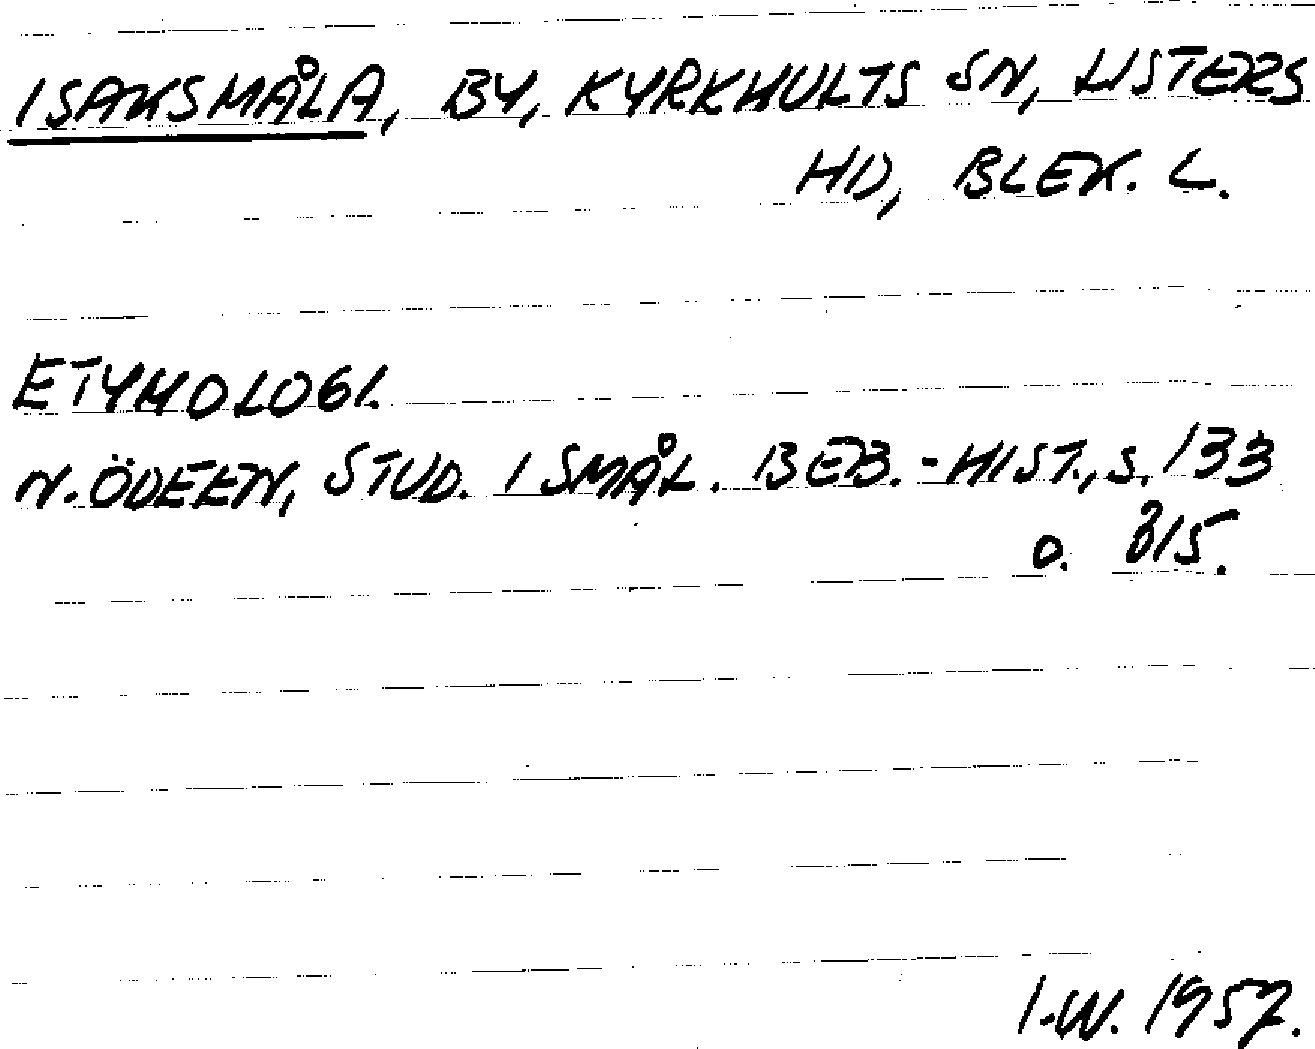 ISAKSMÅLA, BY, KYRKHULTS SN, LISTERS
HD, BLEK. L.
ETYMOLOGI.
N. ÖDEEN, STUD. I SMÅL. BEB.-HIST., S. 133
O. 315.
I.W. 1957.